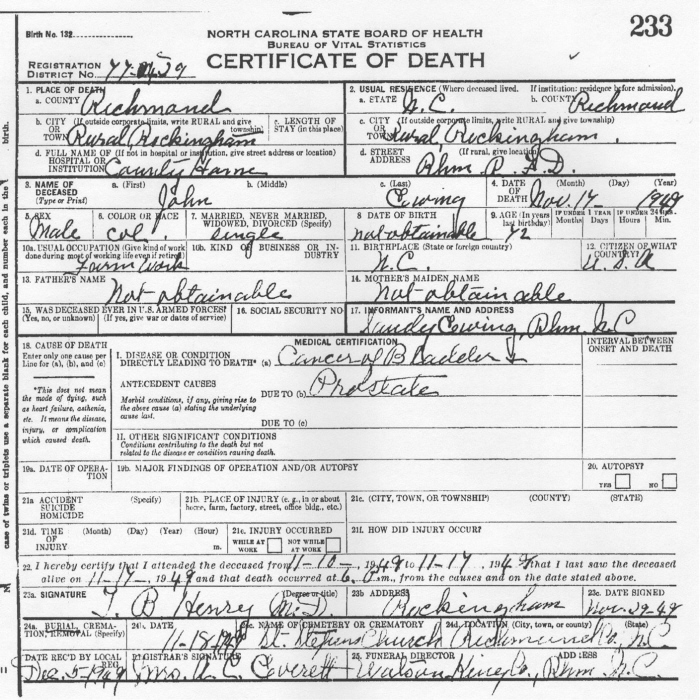 233
Birth No. 132
NORTH CAROLINA STATE BOARD OF HEALTH
BUREAU OF VITAL STATISTICS
CERTIFICATE OF DEATH
REGISTRATION DISTRICT No. 77-
1. PLACE OF DEATH
a. COUNTY Richmond
2. USUAL RESIDENCE (Where deceased lived. If institution: residence before admission).
a. STATE N.C. b. COUNTY Richmond
b. CITY (If outside corporate limits, write RURAL and give township) OR TOWN Rural, Rockingham
c. LENGTH OF STAY (in this place)
c. CITY (If outside corporate limits, write RURAL and give township) OR TOWN Rural, Rockingham.
d. FULL NAME OF (If not in hospital or institution, give street address or location) HOSPITAL OR INSTITUTION County Home
d. STREET ADDRESS (If rural, give location) Rhm R. F. D.
3. NAME OF DECEASED (Type or Print)
a. (First) John
b. (Middle)
c. (Last)
4. DATE OF DEATH (Month) (Day) (Year) Nov. 17- 1949
5. SEX Male
6. COLOR OR RACE Col.
7. MARRIED, NEVER MARRIED, WIDOWED, DIVORCED (Specify) Single
8 DATE OF BIRTH not obtainable
9. AGE (In years last birthday)
IF UNDER 1 YEAR Months Days
IF UNDER 24 Hrs. Hours Min.
10a. USUAL OCCUPATION (Give kind of work done during most of working life even if retired) Farm Work
10b. KIND OF BUSINESS OR INDUSTRY
11. BIRTHPLACE (State or foreign country) N.C.
12. CITIZEN OF WHAT COUNTRY? U.S.A
13. FATHER'S NAME Not obtainable
14. MOTHER'S MAIDEN NAME Not obtainable
15. WAS DECEASED EVER IN U.S. ARMED FORCES? (Yes, no, or unknown) (If yes, give war or dates of service)
16. SOCIAL SECURITY NO.
17. INFORMANT'S NAME AND ADDRESS Rhm N.C
18. CAUSE OF DEATH
Enter only one cause per Line for (a), (b), and (c)
*This does not mean the mode of dying, such as heart failure, asthenia, etc. It means the disease, injury, or complication which caused death.
MEDICAL CERTIFICATION
INTERVAL BETWEEN ONSET AND DEATH
I. DISEASE OR CONDITION DIRECTLY LEADING TO DEATH* (a) Cancer of Bladder &
ANTECEDENT CAUSES
Morbid conditions, if any, giving rise to the above cause (a) stating the underlying cause last.
DUE TO (b) Prostate
DUE TO (c)
II. OTHER SIGNIFICANT CONDITIONS
Conditions contributing to the death but not related to the disease or condition causing death.
19a. DATE OF OPERATION
19b. MAJOR FINDINGS OF OPERATION AND/OR AUTOPSY
20. AUTOPSY?
YES NO
21a ACCIDENT SUICIDE HOMICIDE (Specify)
21b. PLACE OF INJURY (e. g., in or about home, farm, factory, street, office bldg., etc.)
21c. (CITY, TOWN, OR TOWNSHIP) (COUNTY) (STATE)
21d. TIME OF INJURY (Month) (Day) (Year) (Hour) m.
21e. INJURY OCCURRED
WHILE AT WORK NOT WHILE AT WORK
21f. HOW DID INJURY OCCUR?
22. I hereby certify that I attended the deceased from 11-10-, 1949 to 11-17, 1949, that I last saw the deceased
alive on 11-17-, 1949 and that death occurred at 6 P.m., from the causes and on the date stated above.
23a. SIGNATURE (Degree or title) T. B Henry M.D.
23b ADDRESS Rockingham
23c. DATE SIGNED Nov. 29-49
24a. BURIAL, CREMATION, REMOVAL (Specify)
24b. DATE 11-18-49
24c. NAME OF CEMETERY OR CREMATORY St. Stephens Church
24d. LOCATION (City, town, or county) (State) Richmond Co. N.C
DATE REC'D BY LOCAL REG. Dec. 5-1949
REGISTRAR'S SIGNATURE Mrs. Coverett
25. FUNERAL DIRECTOR ADDRESS Watson King Co., Rhm N.C
case of twins or triplets use a separate blank for each child, and number each in the
birth.